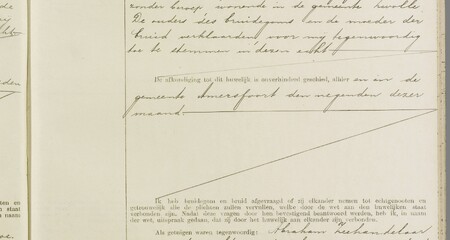 zonder beroep wonende in de gemeente Zwolle
De ouders des bruidegoms en de moeder der
bruid verklaarden voor mij tegenwoordig
toe te stemmen in dezen echt
De afkondiging tot dit huwelijk is onverhinderd geschied, alhier en in de
gemeente Amersfoort den negenden dezer
maand
Ik heb bruidegom en bruid afgevraagd of zij elkander nemen tot echtgenooten en
getrouwelijk alle de plichten zullen vervullen, welke door de wet aan den huwelijken staat
verbonden zijn. Nadat deze vragen door hen bevestigend beantwoord werden, heb ik, in naam
der wet, uitspraak gedaan, dat zij door het huwelijk aan elkander zijn verbonden.
Als getuigen waren tegenwoordig: Abraham